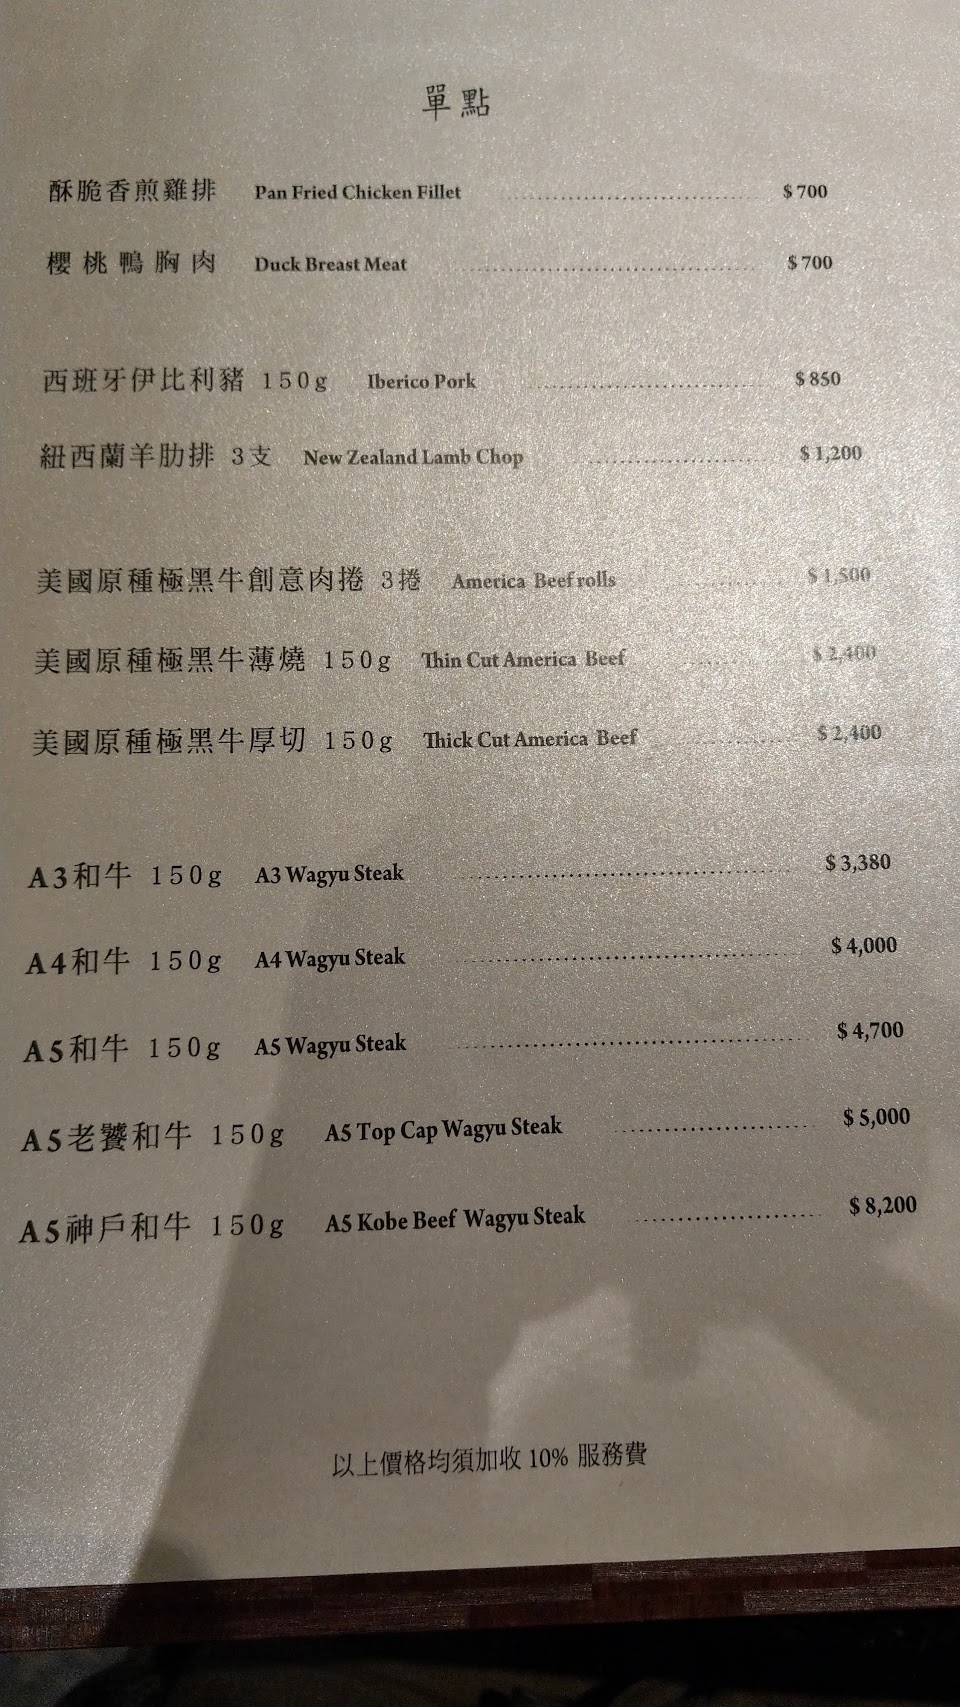 單點
酥脆香煎雞排 Pan Fried Chicken Fillet $700
櫻桃鴨胸肉 Duck Breast Meat $700
西班牙伊比利豬 150g Iberico Pork $850
紐西蘭羊肋排 3支 New Zealand Lamb Chop $1,200
美國原種極黑牛創意肉捲 3捲 America Beef rolls $1,500
美國原種極黑牛薄燒 150g Thin Cut America Beef $2,400
美國原種極黑牛厚切 150g Thick Cut America Beef $2,400
A3和牛 150g A3 Wagyu Steak $3,380
A4和牛 150g A4 Wagyu Steak $4,000
A5和牛 150g A5 Wagyu Steak $4,700
A5老饕和牛 150g A5 Top Cap Wagyu Steak $5,000
A5神戶和牛 150g A5 Kobe Beef Wagyu Steak $8,200
以上價格均須加收 10% 服務費